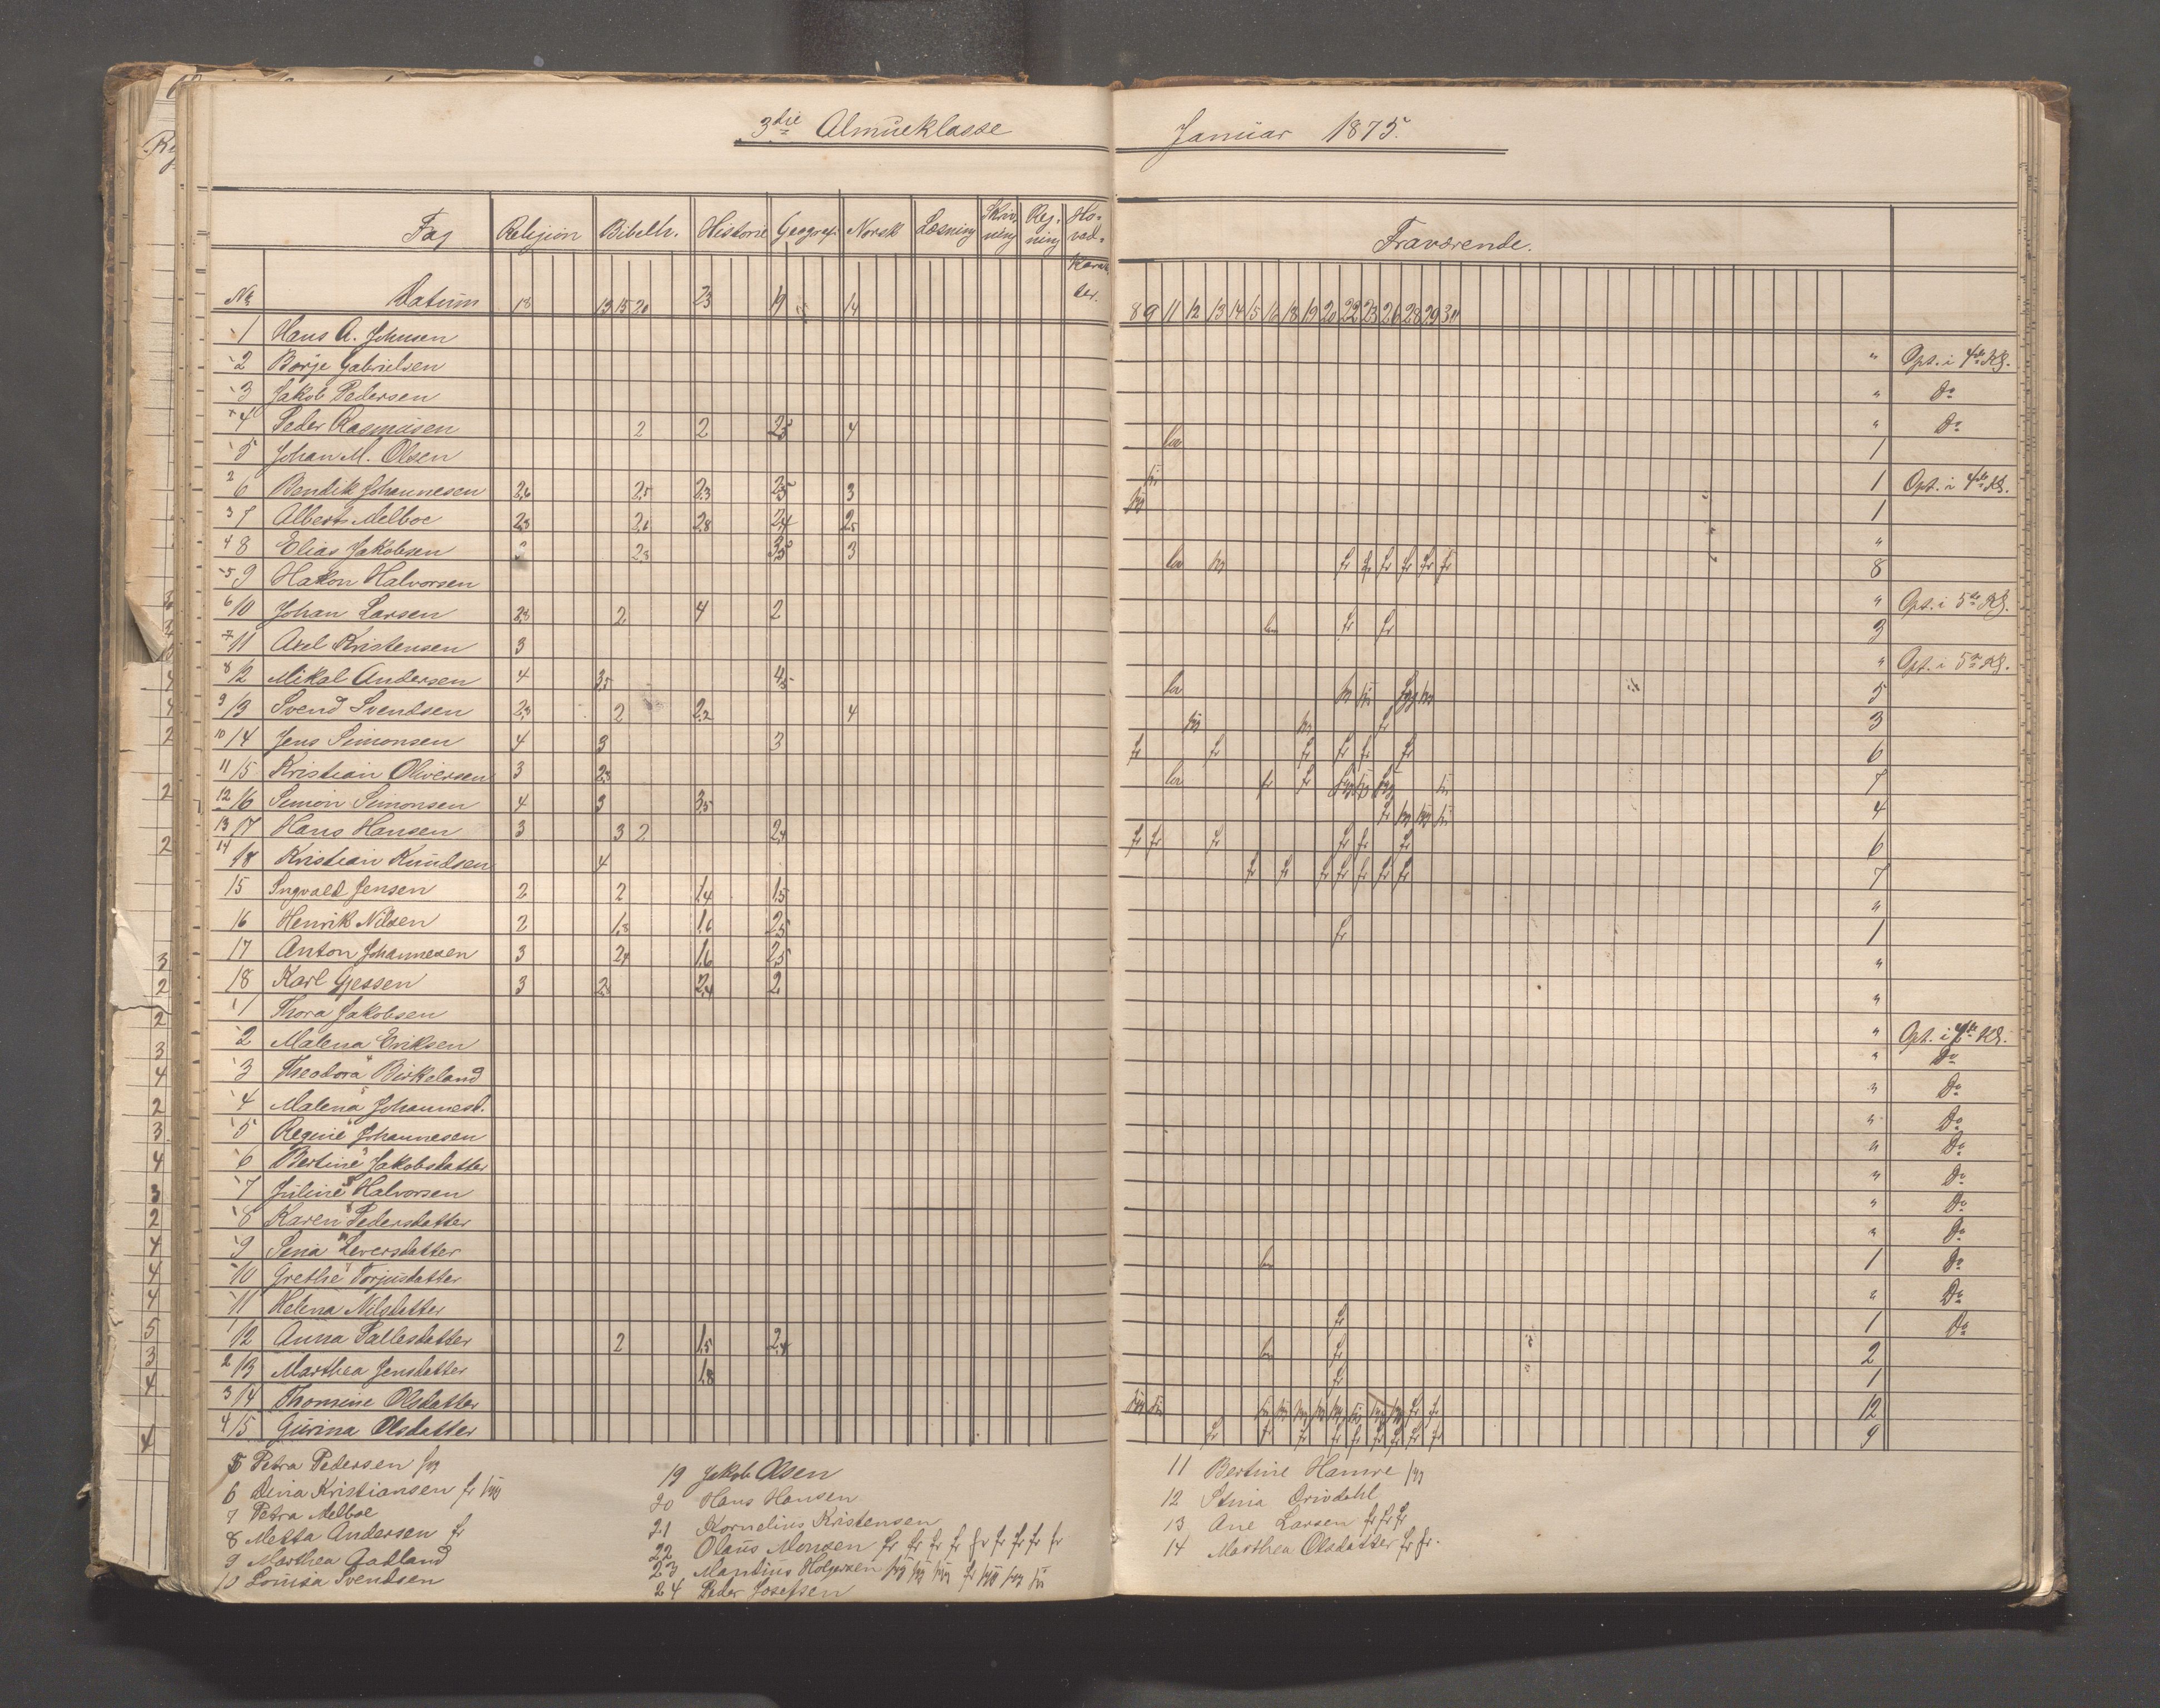 3die Almueklasse
Januar 1875.
Fag Religion Bibelh. Historie Geograf. Norsk Læsning Skrivning Regning Hovedkarakter.
Fraværende.
No Datum 18 13 15 20 23 19 14
8 9 11 12 13 14 15 16 18 19 20 22 23 26 28 29 30
1 Hans A. Johnsen " Opt. i 4de Kl.
2 Børje Gabrielsen " Do
3 Jakob Pedersen " Do
4 Peder Rasmusen 2 2 2,5 4 lov 1
5 Johan M. Olsen 1 Opt. i 4de Kl.
2 6 Bendik Johannesen 2,6 2,5 2,3 2,5 3 syg 1
3 7 Albert Melboe 2,3 2,6 2,8 2,4 2,5 "
4 8 Elias Jakobsen 2,3 3,5 3 lov fr fr fr fr fr 8
5 9 Hakon Halvorsen " Opt. i 5te Kl.
6 10 Johan Larsen 2,3 2 4 2 fr fr 3
7 11 Axel Kristensen 3 " Opt. i 5te Kl.
8 12 Mikal Andersen 4 3,5 4,5 lov 5
9 13 Svend Svendsen 2,3 2 2,2 4 3
10 14 Jens Simonsen 4 3 3 fr fr fr fr fr fr 6
11 15 Kristian Oliversen 3 2,3 lov fr fr 7
12 16 Simon Simonsen 4 3 3,5 fr 4
13 17 Hans Hansen 3 3 2 2,4 fr fr fr fr fr fr 6
14 18 Kristian Knudsen 4 fr fr fr fr fr fr fr 7
15 Ingvald Jensen 2 2 1,4 1,5 "
16 Henrik Nilsen 2 1,8 1,6 2,5 fr 1
17 Anton Johannesen 3 2,4 1,6 2,5 "
18 Karl Gjessen 3 2,3 2,4 2 "
1 Thora Jakobsen " Opt. i 4de Kl.
2 Malena Eriksen " Do
3 Theodora Birkeland " Do
4 Malena Johannesd. " Do
5 Regine Johannesen " Do
6 Bertine Jakobsdatter " Do
7 Juline Halvorsen " Do
8 Karen Pedersdatter " Do
9 Sina Siversdatter 1 Do
10 Grethe Torjusdatter " Do
11 Helena Nilsdatter fr 1 Do
12 Anna Pallesdatter 2 1,5 2,4 lov fr 2
2 13 Marthea Jensdatter 1,8 fr 1
3 14 Thomine Olsdatter fr fr 12
4 15 Gurina Olsdatter fr fr fr fr fr fr fr fr fr 9
5 Petra Pedersen syg
6 Dina Kristiansen fr syg
7 Petra Melboe
8 Metta Andersen fr
9 Marthea Gadland
10 Louisa Svendsen
19 Jakob Olsen
20 Hans Hansen
21 Kornelius Kristensen
22 Olaus Monsen fr fr fr fr fr fr fr fr fr
23 Mantius Holgersen syg syg syg fr syg syg syg
24 Peder Josefsen
11 Bertine Hamre syg
12 Stina Drivdahl
13 Ane Larsen fr fr fr
14 Marthea Olsdatter fr fr.